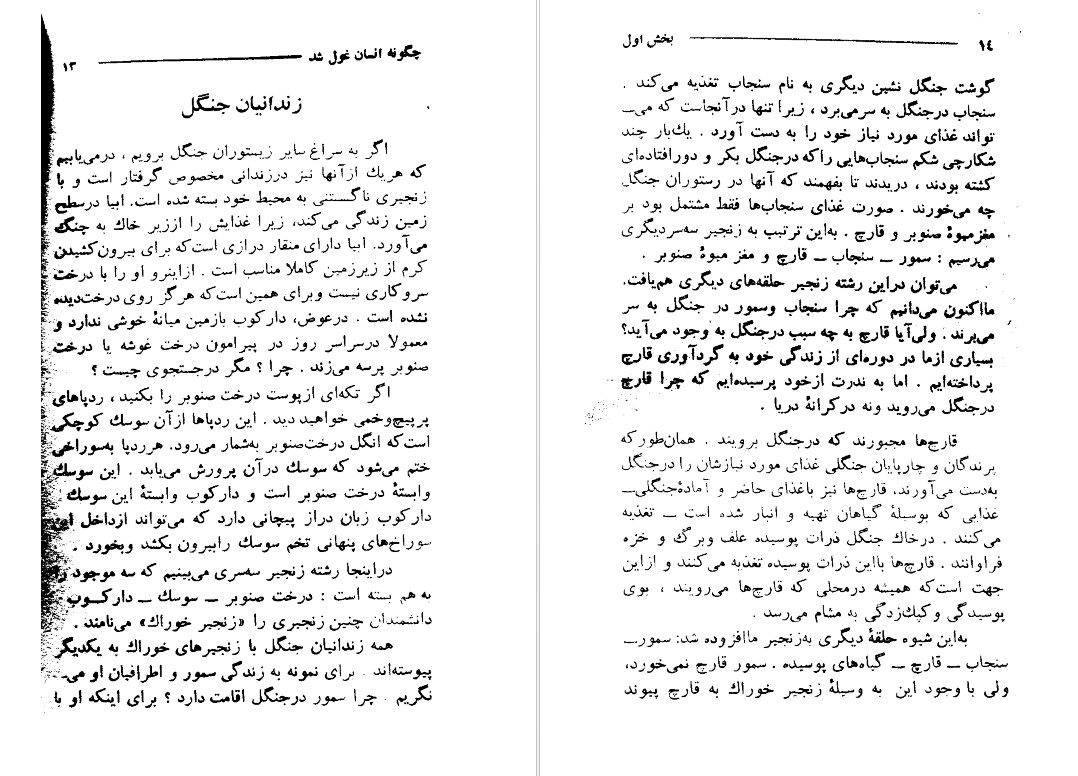 چگونه انسان غول شد ۱۳
زندانیان جنگل
اگر به سراغ سایر زیستوران جنگل برویم ، درمی‌یابیم
که هریك ازآنها نیز درزندانی مخصوص گرفتار است و با
زنجیری ناگستنی به محیط خود بسته شده است. ابیا درسطح
زمین زندگی می‌کند، زیرا غذایش را اززیر خاك به چنگ
می‌آورد. ابیا دارای منقار درازی است‌که برای بیرون‌کشیدن
کرم از زیرزمین کاملا مناسب است . ازاینرو او را با درخت
سروکاری نیست وبرای همین است‌که هرگز روی درخت‌دیده
نشده است . درعوض، دارکوب بازمین میانهٔ خوشی ندارد و
معمولا درسراسر روز در پیرامون درخت غوشه یا درخت
صنوبر پرسه می‌زند . چرا ؟ مگر درجستجوی چیست ؟
اگر تکه‌ای ازپوست درخت صنوبر را بکنید ، ردپاهای
پرپیچ‌وخمی خواهید دید . این ردپاها ازآن سوسك کوچکی
است‌که انگل درخت‌صنوبر به‌شمار می‌رود. هرردپا به‌سوراخی
ختم می‌شود که سوسك درآن پرورش می‌یابد . این سوسك
وابستهٔ درخت صنوبر است و دارکوب وابستهٔ این سوسك .
دارکوب زبان دراز پیچانی دارد که می‌تواند ازداخل این
سوراخ‌های پنهانی تخم سوسك رابیرون بکشد وبخورد .
دراینجا رشته زنجیر سه‌سری می‌بینیم که سه موجود را
به هم بسته است : درخت صنوبر ــ سوسك ــ دارکوب .
دانشمندان چنین زنجیری را «زنجیر خوراك» می‌نامند .
همه زندانیان جنگل با زنجیرهای خوراك به یکدیگر
پیوسته‌اند . برای نمونه به زندگی سمور و اطرافیان او می‌ــ
نگریم . چرا سمور درجنگل اقامت دارد ؟ برای اینکه او با
۱۴ بخش اول
گوشت جنگل نشین دیگری به نام سنجاب تغذیه می‌کند .
سنجاب درجنگل به سرمی‌برد ، زیرا تنها درآنجاست که می‌ــ
تواند غذای مورد نیاز خود را به دست آورد . یك‌بار چند
شکارچی شکم سنجاب‌هایی راکه درجنگل بکر و دورافتاده‌ای
کشته بودند ، دریدند تا بفهمند که آنها در رستوران جنگل
چه می‌خورند . صورت غذای سنجاب‌ها فقط مشتمل بود بر
مغزمیوهٔ صنوبر و قارچ . به‌این ترتیب به زنجیر سه‌سردیگری
می‌رسیم : سمور ــ سنجاب ــ قارچ و مغز میوهٔ صنوبر .
می‌توان دراین رشته زنجیر حلقه‌های دیگری هم‌یافت.
مااکنون می‌دانیم که چرا سنجاب وسمور در جنگل به سر
می‌برند . ولی‌آیا قارچ به چه سبب درجنگل به وجود می‌آید؟
بسیاری ازما در دوره‌ای از زندگی خود به گردآوری قارچ
پرداخته‌ایم . اما به ندرت ازخود پرسیده‌ایم که چرا قارچ
درجنگل می‌روید ونه درکرانهٔ دریا .
قارچ‌ها مجبورند که درجنگل برویند . همان‌طورکه
پرندگان و چارپایان جنگلی غذای مورد نیازشان را درجنگل
به‌دست می‌آورند، قارچ‌ها نیز باغذای حاضر و آمادهٔ‌جنگلی‌ــ
غذایی که بوسیلهٔ گیاهان تهیه و انبار شده است ــ تغذیه
می‌کنند . درخاك جنگل ذرات پوسیده علف وبرگ و خزه
فراوانند . قارچ‌ها بااین ذرات پوسیده تغذیه می‌کنند و ازاین
جهت است‌که همیشه درمحلی که قارچ‌ها می‌رویند ، بوی
پوسیدگی وکپك‌زدگی به مشام می‌رسد .
به‌این شیوه حلقهٔ دیگری به‌زنجیر ماافزوده شد: سمورــ
سنجاب ــ قارچ ــ گیاه‌های پوسیده . سمور قارچ نمی‌خورد،
ولی با وجود این به وسیلهٔ زنجیر خوراك به قارچ پیوند